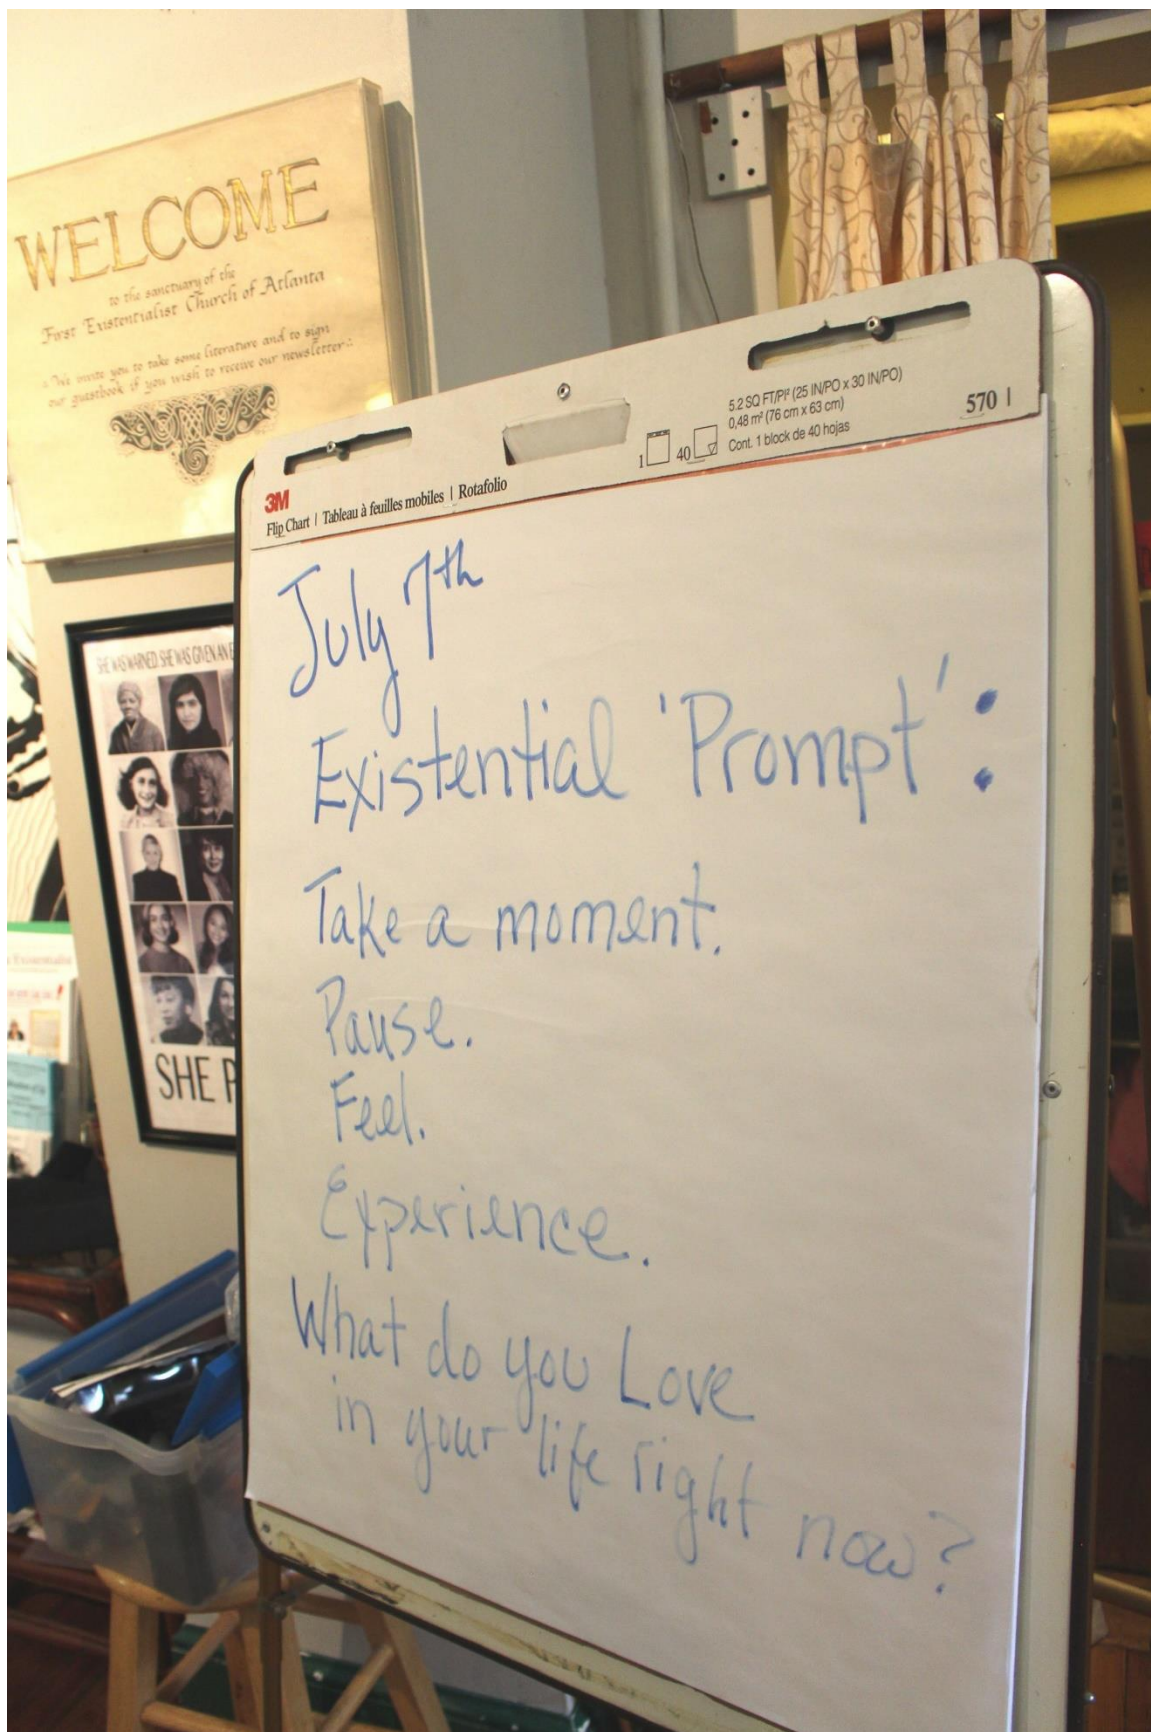 WELCOME
to the sanctuary of the
First Existentialist Church of Atlanta
We invite you to take some literature and to sign
our guestbook if you wish to receive our newsletter
3M
Flip Chart | Tableau à feuilles mobiles | Rotafolio
1
40
5.2 SQ FT/PI² (25 IN/PO x 30 IN/PO)
0,48 m² (76 cm x 63 cm)
Cont. 1 block de 40 hojas
570
July 7th
Existential 'Prompt':
Take a moment.
Pause.
Feel.
Experience.
What do you Love
in your life right now?
SHE WAS WARNED. SHE WAS GIVEN AN E
SHE P
Existentialist